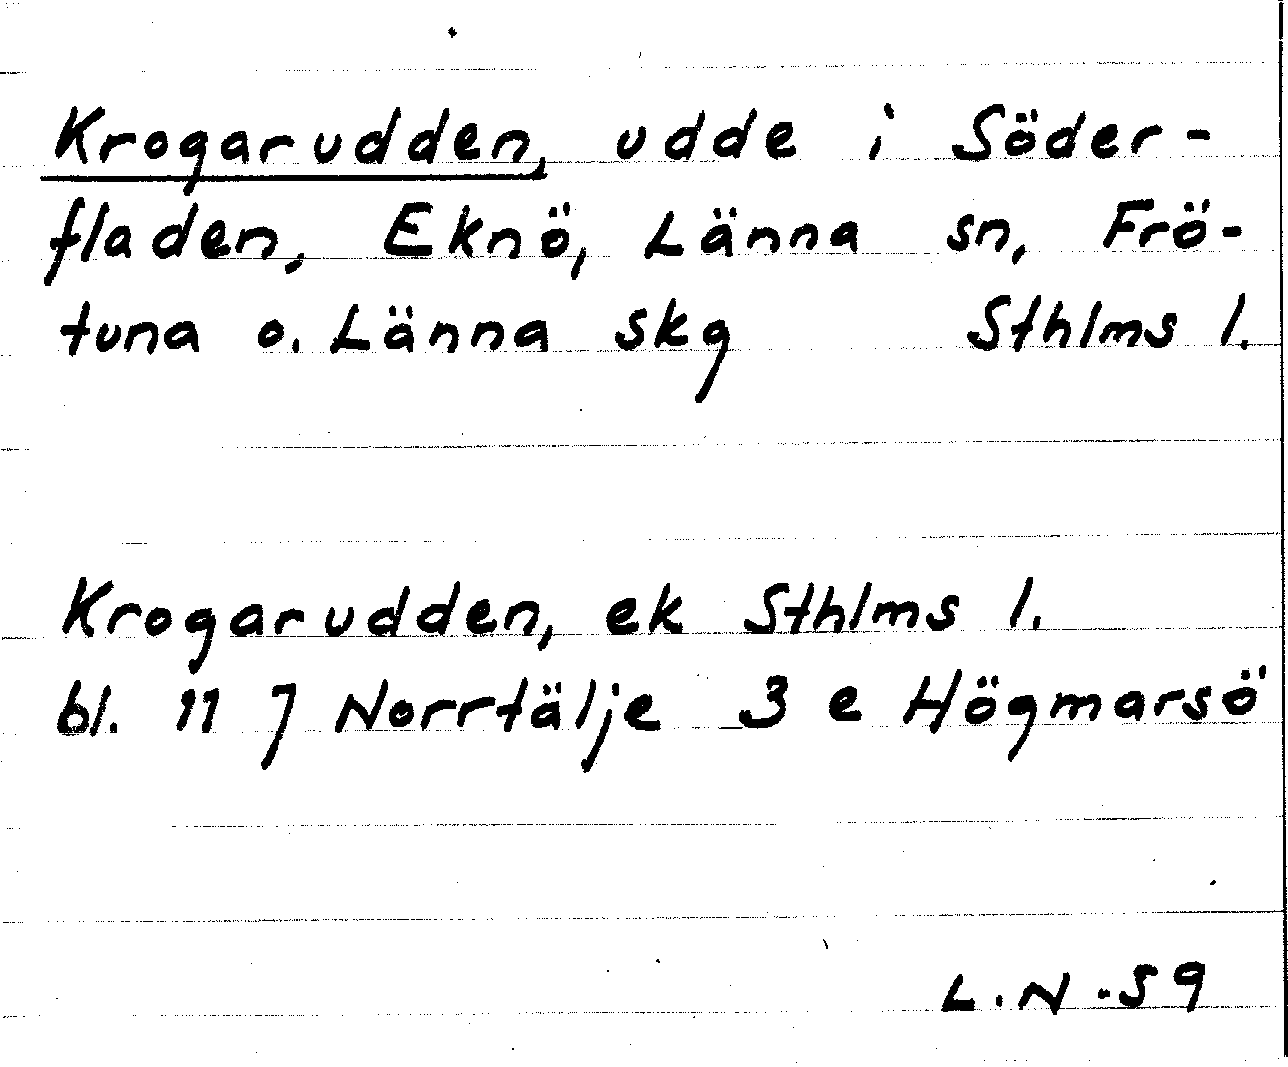 Krogarudden, udde i Söder-
fladen, Eknö, Länna sn, Frö-
tuna o. Länna skg Sthlms l.
Krogarudden, ek Sthlms l.
bl. 11 J Norrtälje 3 e Högmarsö
L.N -59